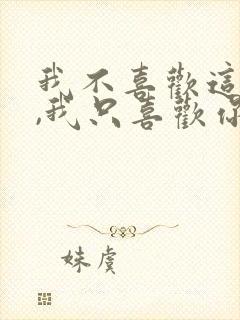 我不喜歡這
,我只喜歡你
妹虞